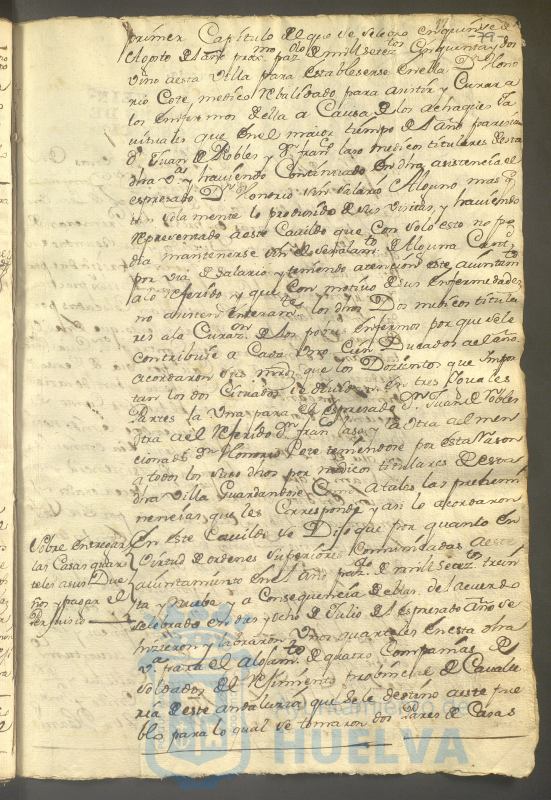 79
primer Capitulo el que se selebro en quinse de
Agosto del año prox.mo paz.do de mill setez.tos Cinquenta y dos
vino a esta Villa para establesense en ella Dn Hono
rio Cote medico Rebalidado para asistir y Curar a
los enfermos della a Causa de los achaques ha
vituales que en el maior tiempo del año
Dn Juan de Robles y Dn fran.co laso medicos titulares desta
dha Va y haviendo Continuado en dha asistencia el
espresado Dn Honorio sin salario Alguno mas q.
tan solamente lo produsido de sus visitas, y haviendo
Representado a este Cavildo que Con solo esto no po
dia mantenerse sin el señalam.to de Alguna Cant.d
por via de salario, y teniendo atension este ayuntam.to
a lo Referido y que Con motivo de sus enfermedades
no asisten enteram.te los dhos Dos medicos titula
res a la Curaz.on de los pobres enfermos por que se le
contribuie a Cada Uno Cien Ducados al año
acordaron sus mrds que los Dosientos que impor
tan los dos Citados se dividan en tres Yguales
Partes la Una para el espresado Dn Juan de Robles
otra a el Referido Dn fran.co laso y la otra al men
cionado Dn Honorio Cote teniendose por esta Rason
a todos los tres dhos por medicos titulares de esta
dha Villa Guardandose Como a tales las prehemi
nencias que les Corresponde y asi lo acordaron
Sobre entregar
las Casas quar
teles a sus Due
ños y pagar el
Perjuisio
En este Cavildo se Dijo que por quanto en
Virtud de ordenes Superiores Comunicadas a este
ayuntamiento en el año paz.do de mill setez.tos trein
ta y nuebe, y a Consequencia de ellas de Acuerdo
selebrado en dies y ocho de Julio del espresado año se
hizieron y labraron Unos quarteles en esta dha
Va para el alojam.to de quatro Compañias de
soldados del Regimiento Probincial de Cavalle
ria de este andalusia que se le destino a este pue
blo para lo qual se tomaron dos Pares de Casas
Ayuntamiento de
HUELVA